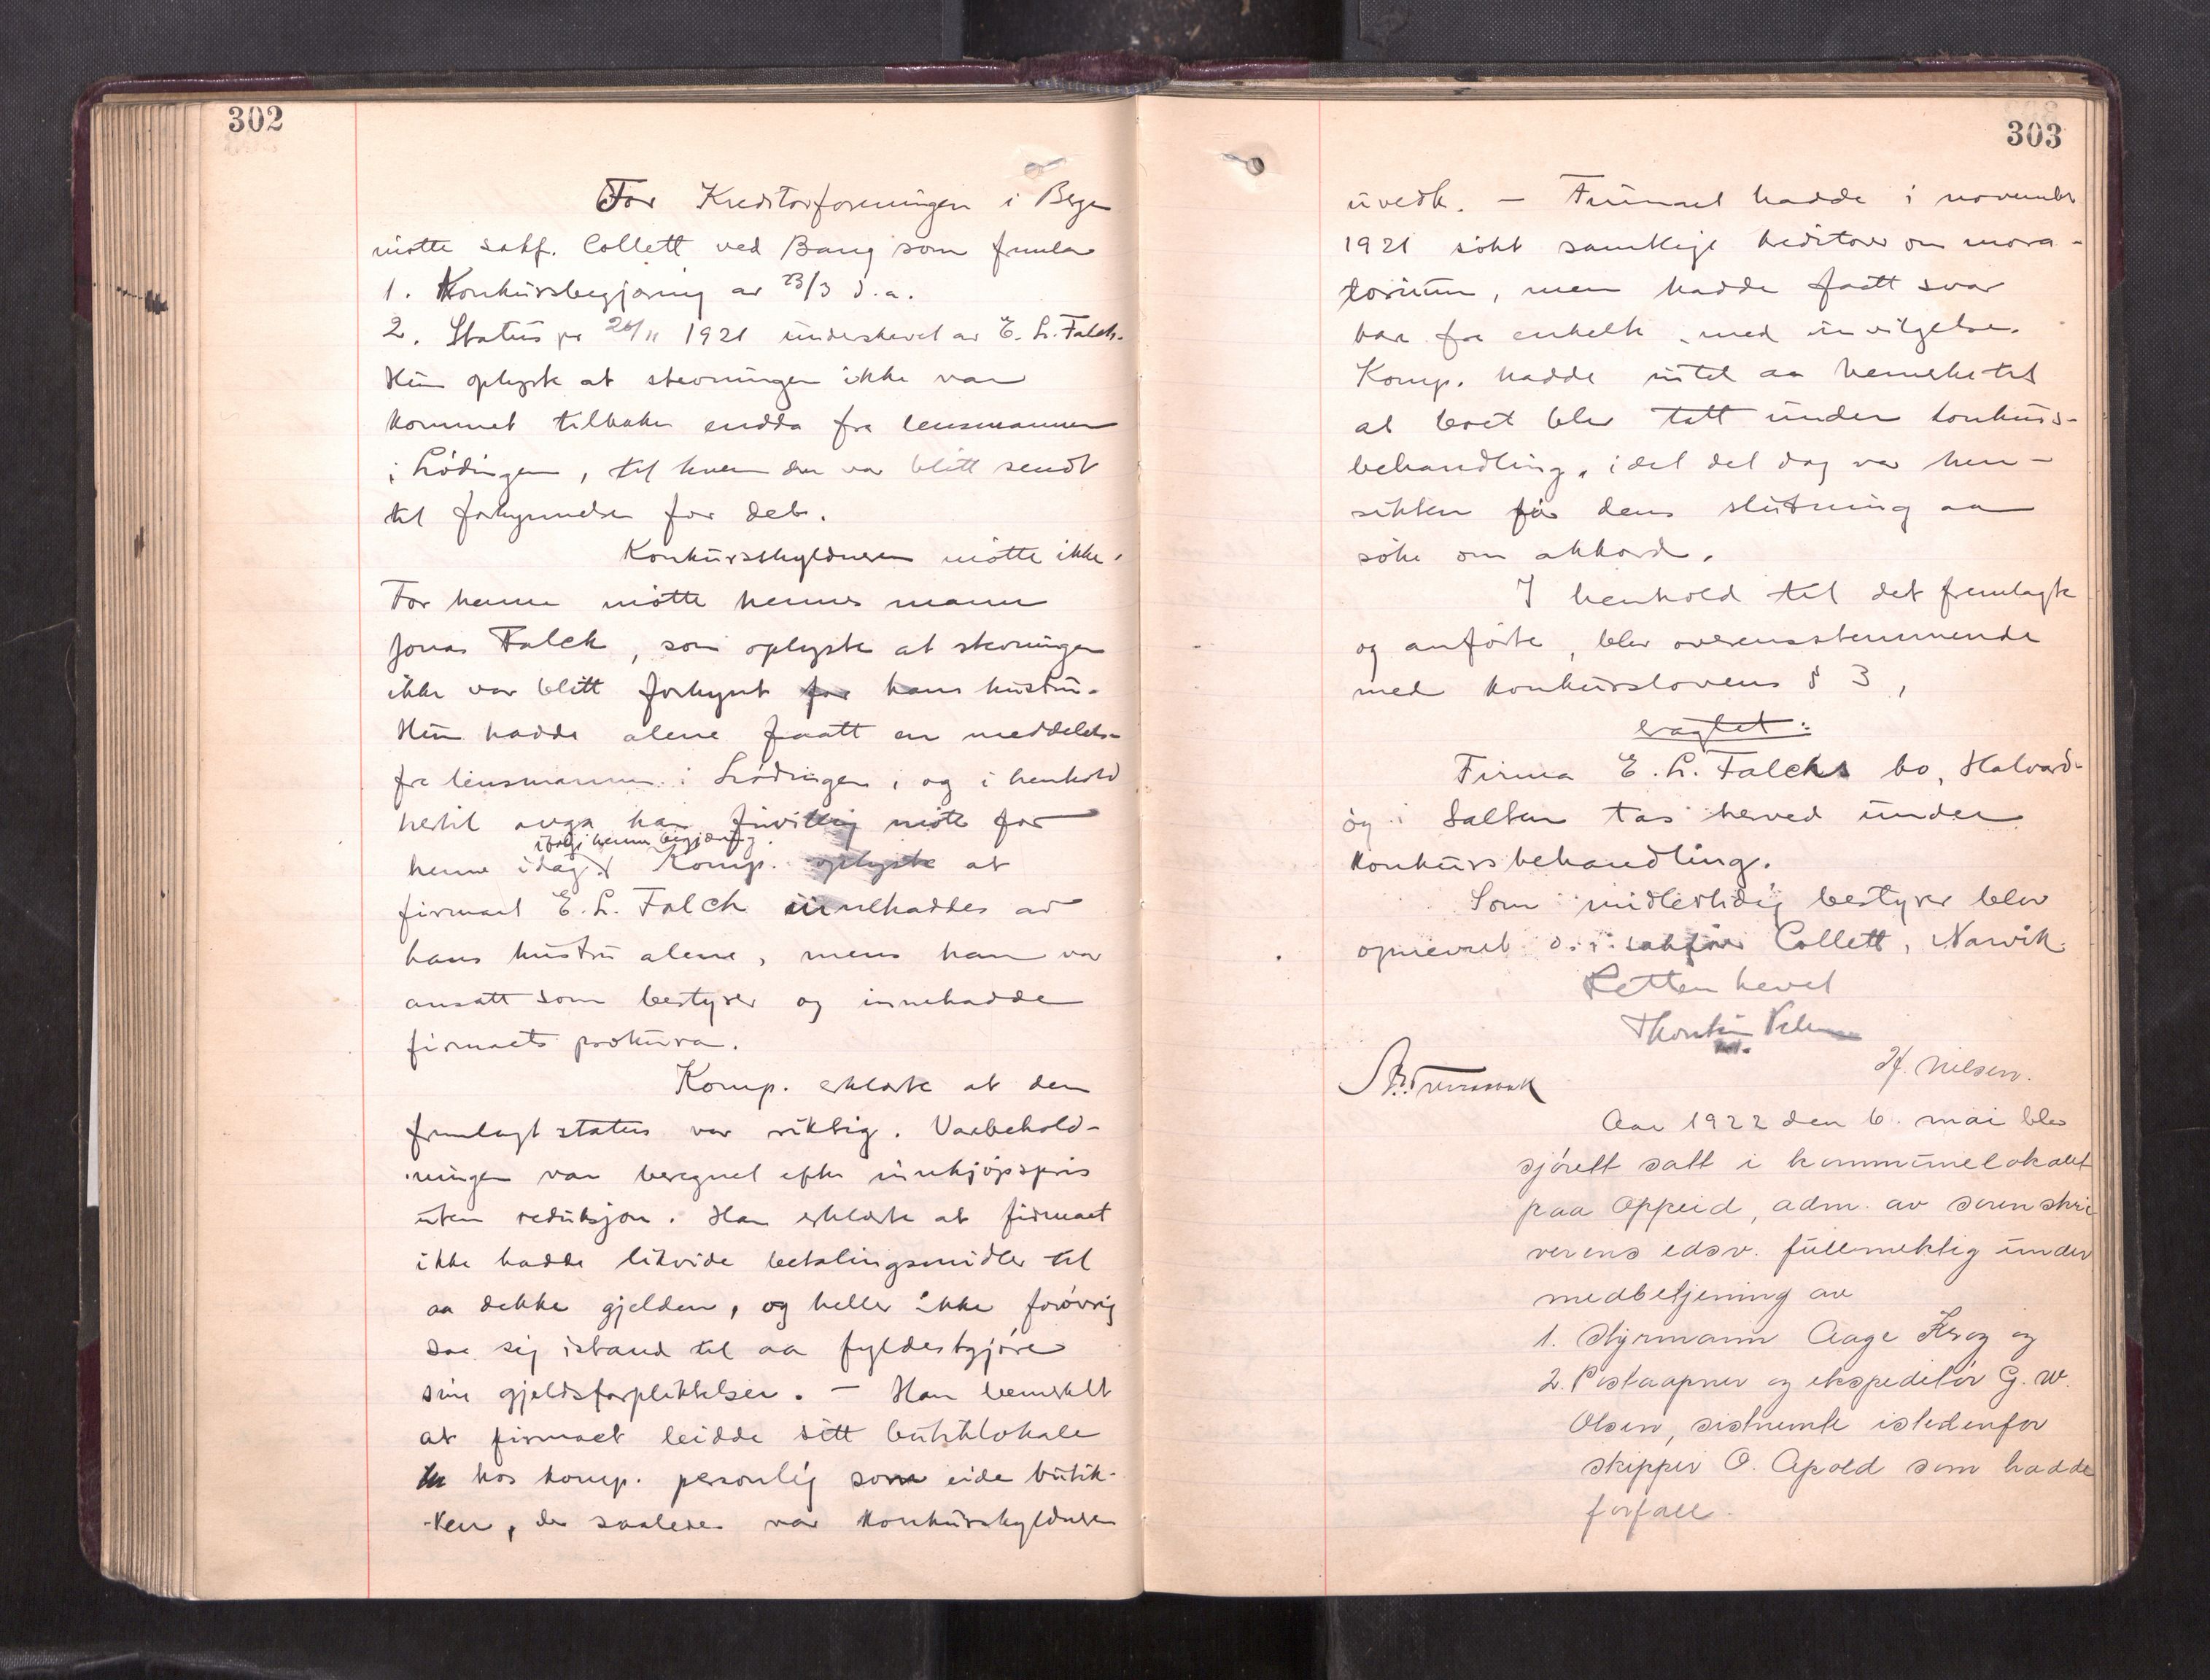 302
For Kreditorforeningen i Bergen
møtte sakf. Collett ved Bang som fremla
1. Konkursbegjæring av 23/3 d.a.
2. Status pr 26/11 1921 underskrevet av E. L. Falch.
Hun oplyste at stevningen ikke var
kommet tilbake endda fra lensmannen
i Lødingen, til hvem den var blitt sendt
til forkynnelse for deb.
Konkursskyldneren møtte ikke.
For henne møtte hennes mann
Jonas Falck, som oplyste at stevningen
ikke var blitt forkynt for hans hustru.
Hun hadde alene faatt en meddelelse
fra lensmannen i Lødingen, og i henhold
hertil avga han frivillig møte for
ifølge hennes begjæring.
henne idag. Komp. oplyste at
firmaet E. L. Falch innehaddes av
hans hustru alene, mens han var
ansatt som bestyrer og innehadde
firmaets prokura.
Komp. erklærte at den
fremlagt status var riktig. Varebehold-
ningen var beregnet efter innkjøpspris
uten reduksjon. Han erklærte at firmaet
ikke hadde likvide betalingsmidler til
aa dekke gjelden, og heller ikke forøvrig
saa sig istand til aa fyldestgjøre
sine gjeldsforpliktelser. — Han bemerket
at firmaet leidde sitt butiklokale
hos komp. personlig som eide butik-
ken, der saaledes var konkursskyldneren
303
uvedk. — Firmaet hadde i november
1921 søkt samtlige kreditorer om mora-
torium, men hadde faatt svar
bare fra enkelte, med innvilgelse.
Komp. hadde intet aa bemerke til
at boet blev tatt under konkurs-
behandling, idet det dog var hen-
sikten før dens slutning aa
søke om akkord.
I henhold til det fremlagte
og anførte, blev overensstemmende
med konkurslovens § 3,
eragtet:
Firma E. L. Falchs bo, Halvard-
øy i Salten tas herved under
konkursbehandling.
Som midlertidig bestyrer blev
opnevnt o.r.sakfører Collett, Narvik.
Retten hevet
H. Nilsen.
Aar 1922 den 6. mai blev
sjørett satt i kommunelokalet
paa Oppeid, adm. av sorenskri
verens edsv. fullmektig under
medbetjening av
1. Styrmann Aage Krog og
2. Postaapner og ekspeditør G. W.
Olsen, sistnevnte istedenfor
skipper O. Apold som hadde
forfall.